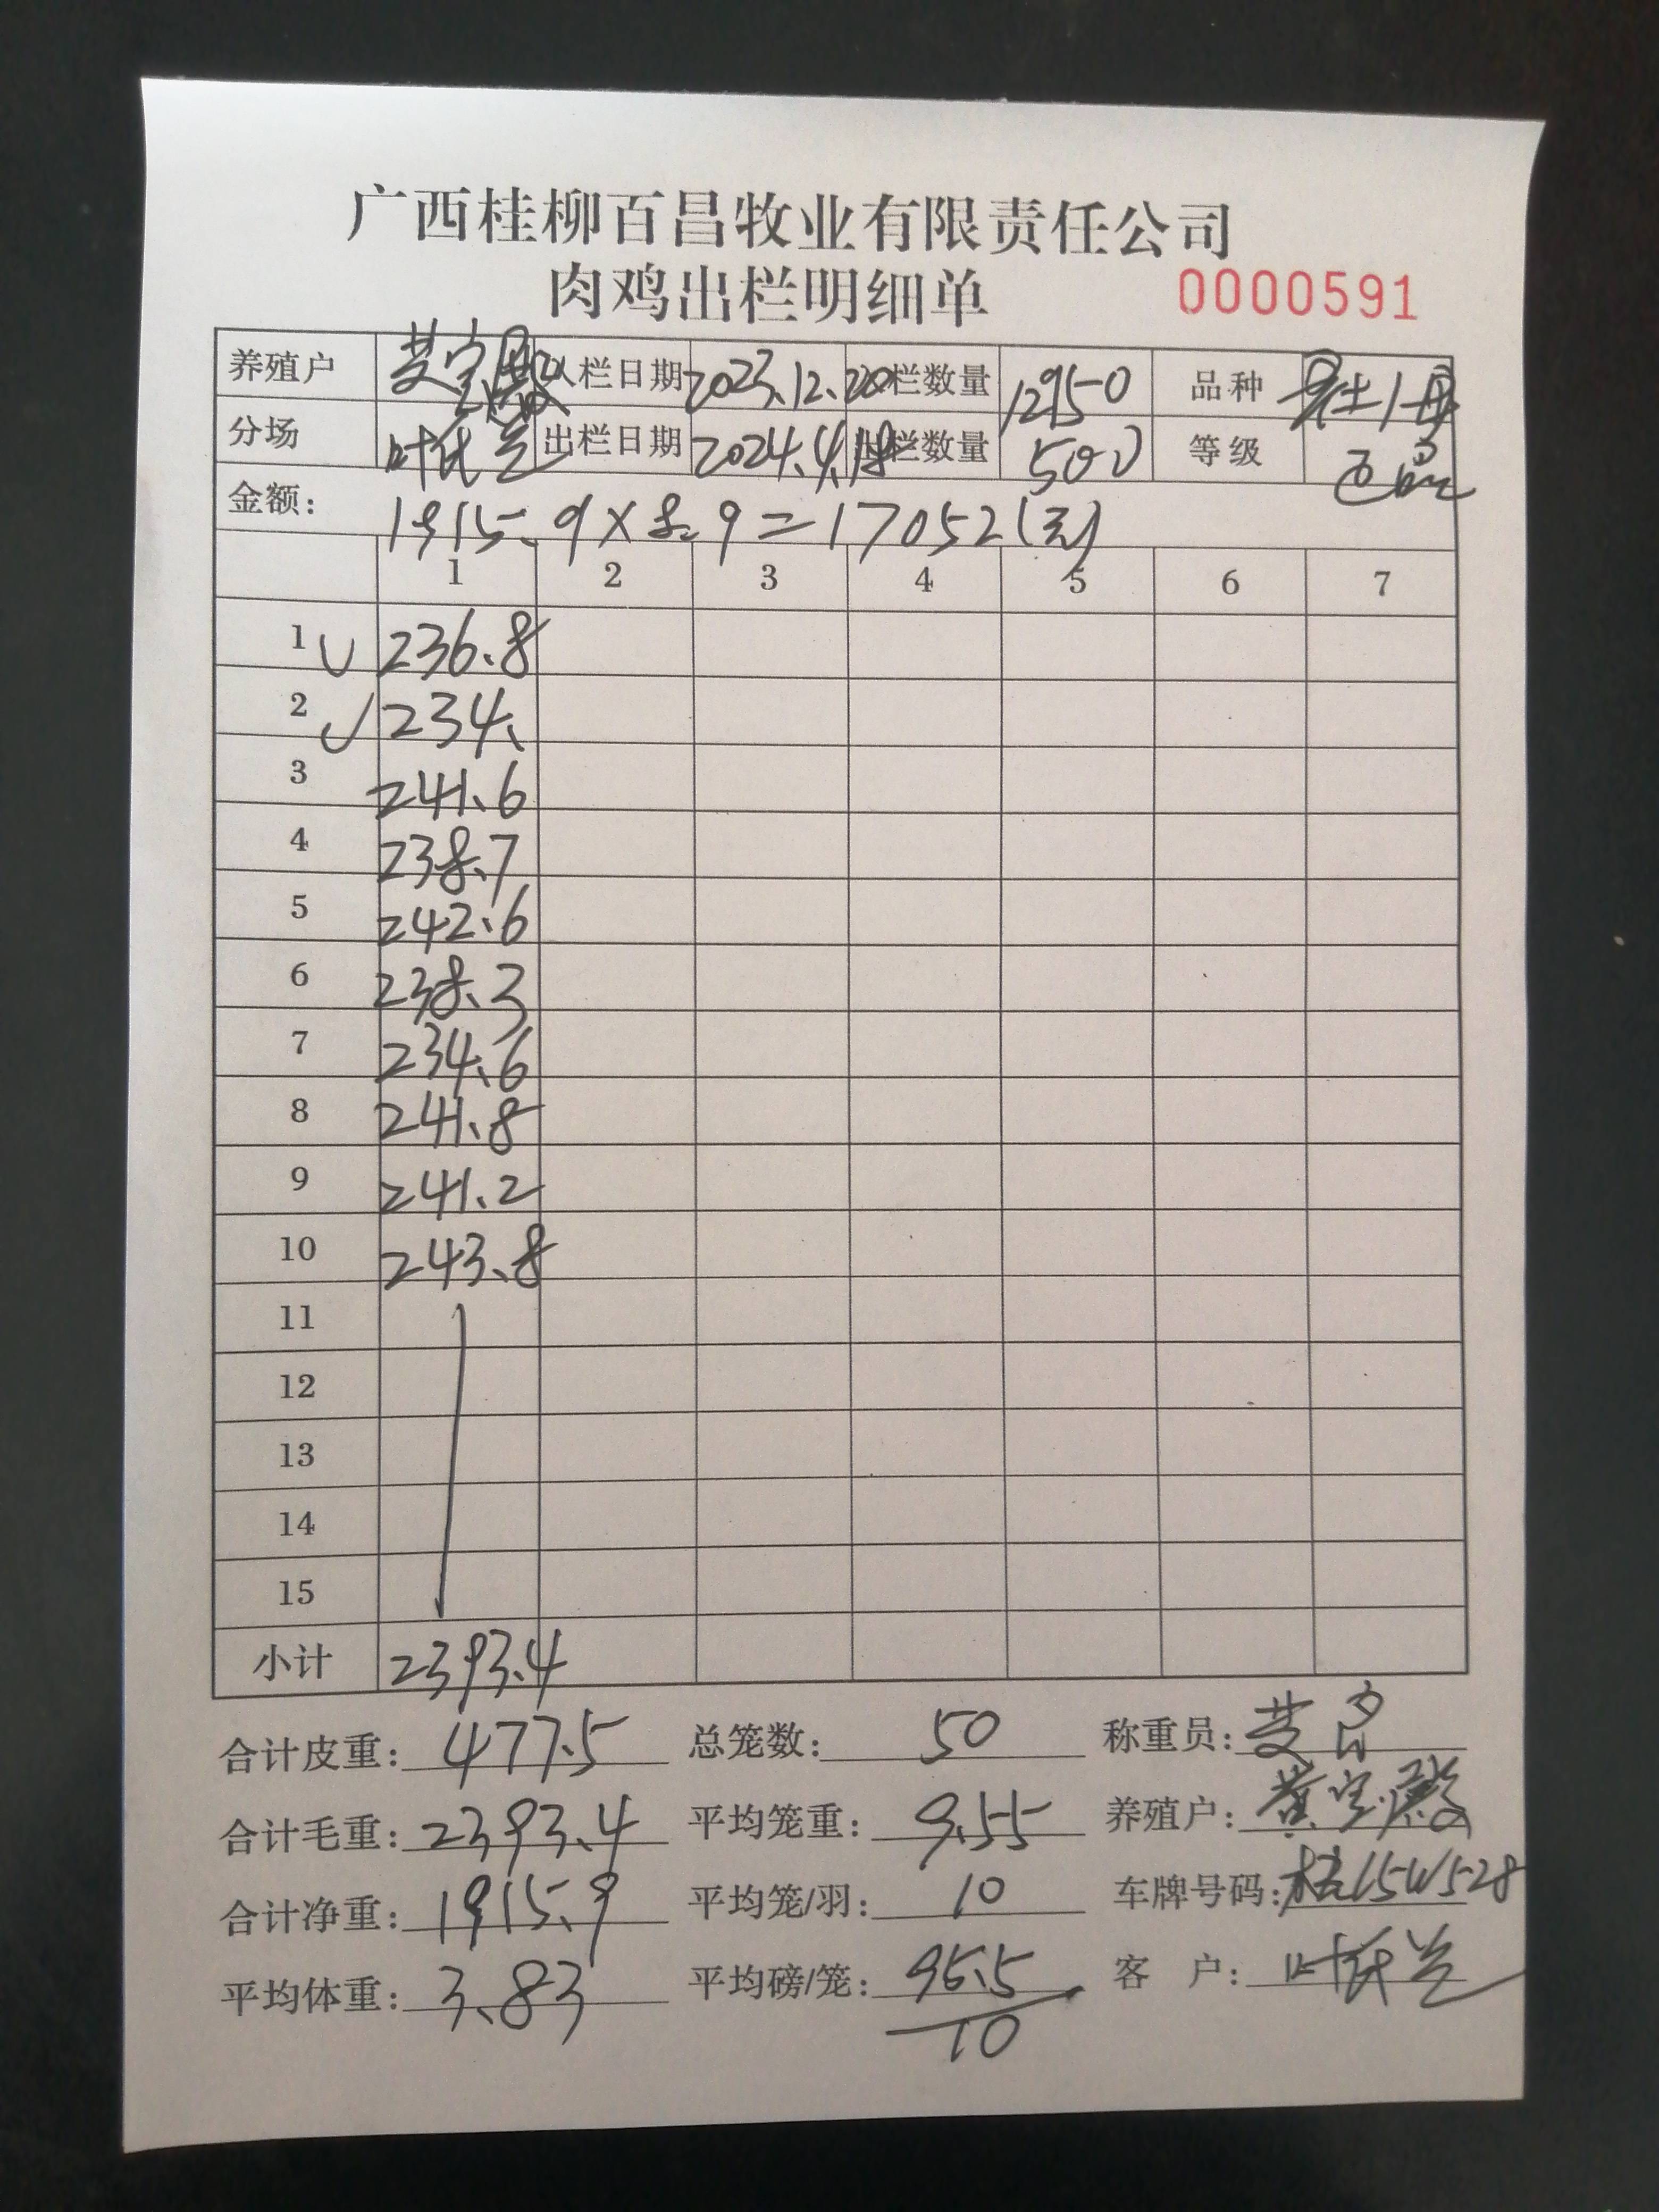 广西桂柳百昌牧业有限责任公司
肉鸡出栏明细单 0000591
养殖户 入栏日期 2023.12.20 入栏数量 12950 品种
分场 叶氏兰 出栏日期 2024.4.18 出栏数量 500 等级
金额: 1915.9×8.9=17052(元)
1 2 3 4 5 6 7
1 236.8
2 234.
3 241.6
4 238.7
5 242.6
6 238.3
7 234.6
8 241.8
9 241.2
10 243.8
11
12
13
14
15
小计 2393.4
合计皮重: 477.5 总笼数: 50 称重员:
合计毛重: 2393.4 平均笼重: 9.55 养殖户: 黄宝殿
合计净重: 1915.9 平均笼/羽: 10 车牌号码:
平均体重: 3.83 平均磅/笼: 95.5 客 户: 叶氏兰
10